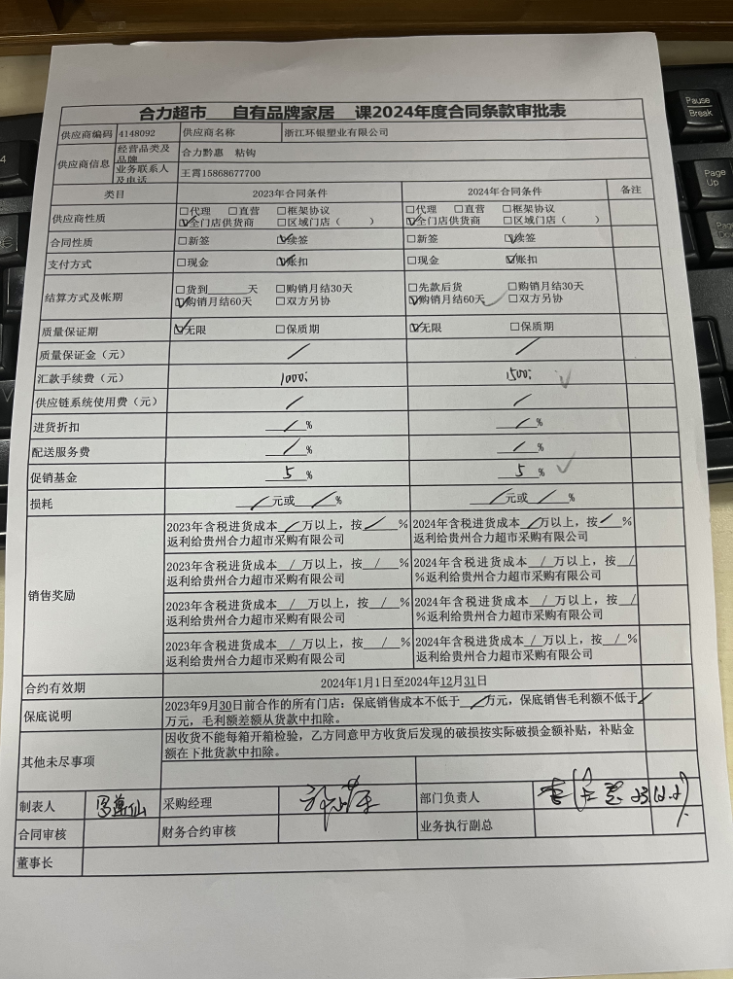 Pause
Break
Page
Up
4
合力超市 自有品牌家居 课2024年度合同条款审批表
供应商编码 4148092 供应商名称 浙江环银塑业有限公司
供应商信息 经营品类及品牌 合力黔惠 粘钩
业务联系人及电话 王霄15868677700
类目 2023年合同条件 2024年合同条件 备注
供应商性质 □代理 □直营 □框架协议 □代理 □直营 □框架协议
☑全门店供货商 □区域门店（ ） ☑全门店供货商 □区域门店（ ）
合同性质 □新签 ☑续签 □新签 ☑续签
支付方式 □现金 ☑账扣 □现金 ☑账扣
结算方式及帐期 □货到____天 □购销月结30天 □先款后货 □购销月结30天
☑购销月结60天 □双方另协 ☑购销月结60天 □双方另协
质量保证期 ☑无限 □保质期 ☑无限 □保质期
质量保证金（元） / /
汇款手续费（元） 1000; 1500; ✓
供应链系统使用费（元） / /
进货折扣 /% /%
配送服务费 /% /%
促销基金 5% 5% ✓
损耗 /元或/% /元或/%
销售奖励
2023年含税进货成本/万以上，按/% 2024年含税进货成本/万以上，按/%
返利给贵州合力超市采购有限公司 返利给贵州合力超市采购有限公司
2023年含税进货成本/万以上，按/% 2024年含税进货成本/万以上，按/
返利给贵州合力超市采购有限公司 %返利给贵州合力超市采购有限公司
2023年含税进货成本/万以上，按/% 2024年含税进货成本/万以上，按/
返利给贵州合力超市采购有限公司 %返利给贵州合力超市采购有限公司
2023年含税进货成本/万以上，按/% 2024年含税进货成本/万以上，按/%
返利给贵州合力超市采购有限公司 返利给贵州合力超市采购有限公司
合约有效期 2024年1月1日至2024年12月31日
保底说明 2023年9月30日前合作的所有门店：保底销售成本不低于/万元，保底销售毛利额不低于/
万元，毛利额差额从货款中扣除。
其他未尽事项 因收货不能每箱开箱检验，乙方同意甲方收货后发现的破损按实际破损金额补贴，补贴金
额在下批货款中扣除。
制表人 采购经理 部门负责人
合同审核 财务合约审核 业务执行副总
董事长